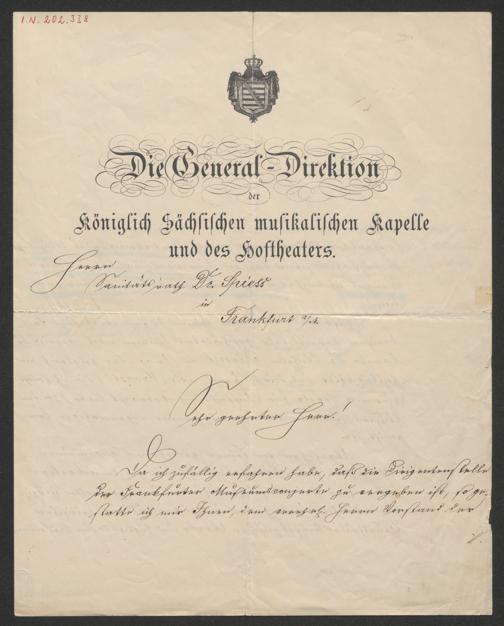 I.N. 202.338
Die General-Direktion
der
Königlich Sächsischen musikalischen Kapelle
und des Hoftheaters.
Herrn
Sanitätsrath Dr. Spiess
in
Frankfurt a/M.
Sehr geehrter Herr!
Da ich zufällig erfahren habe, daß die Dirigentenstelle
der Frankfurter Museumsconzerte zu vergeben ist, so ge-
statte ich mir Ihnen, dem verehrl. Herrn Vorstand der